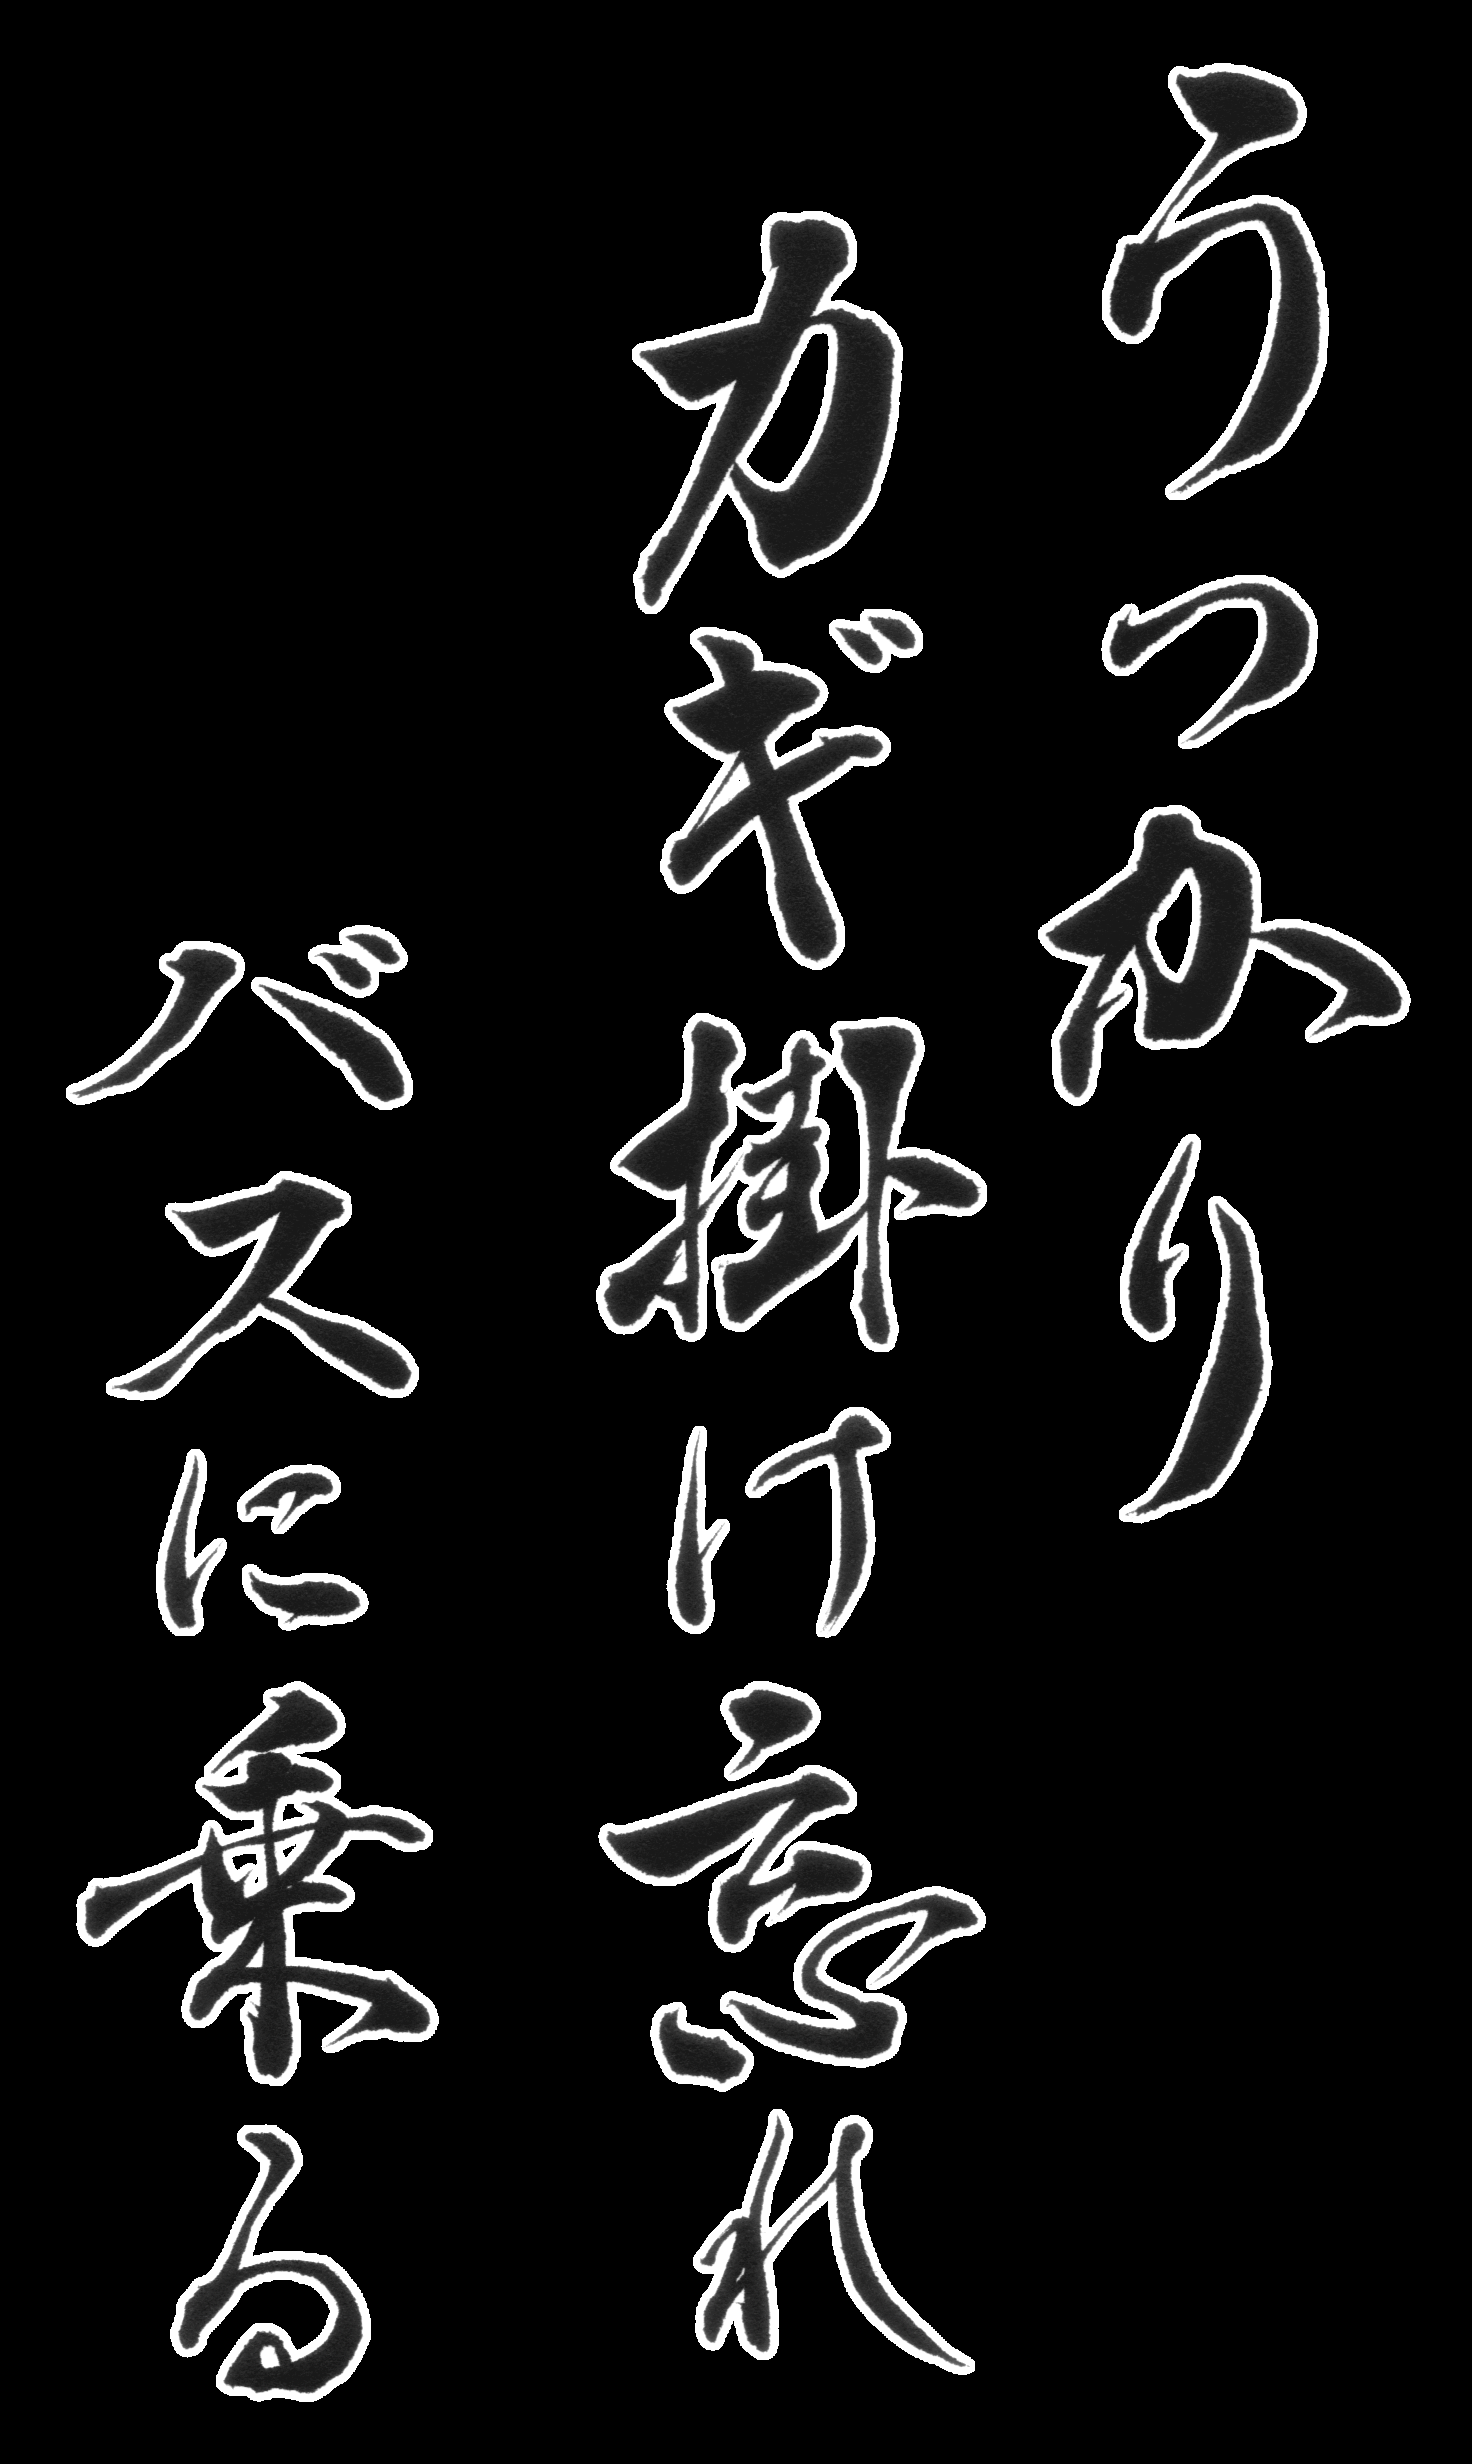 うっかり
カギ掛け忘れ
バスに乗る